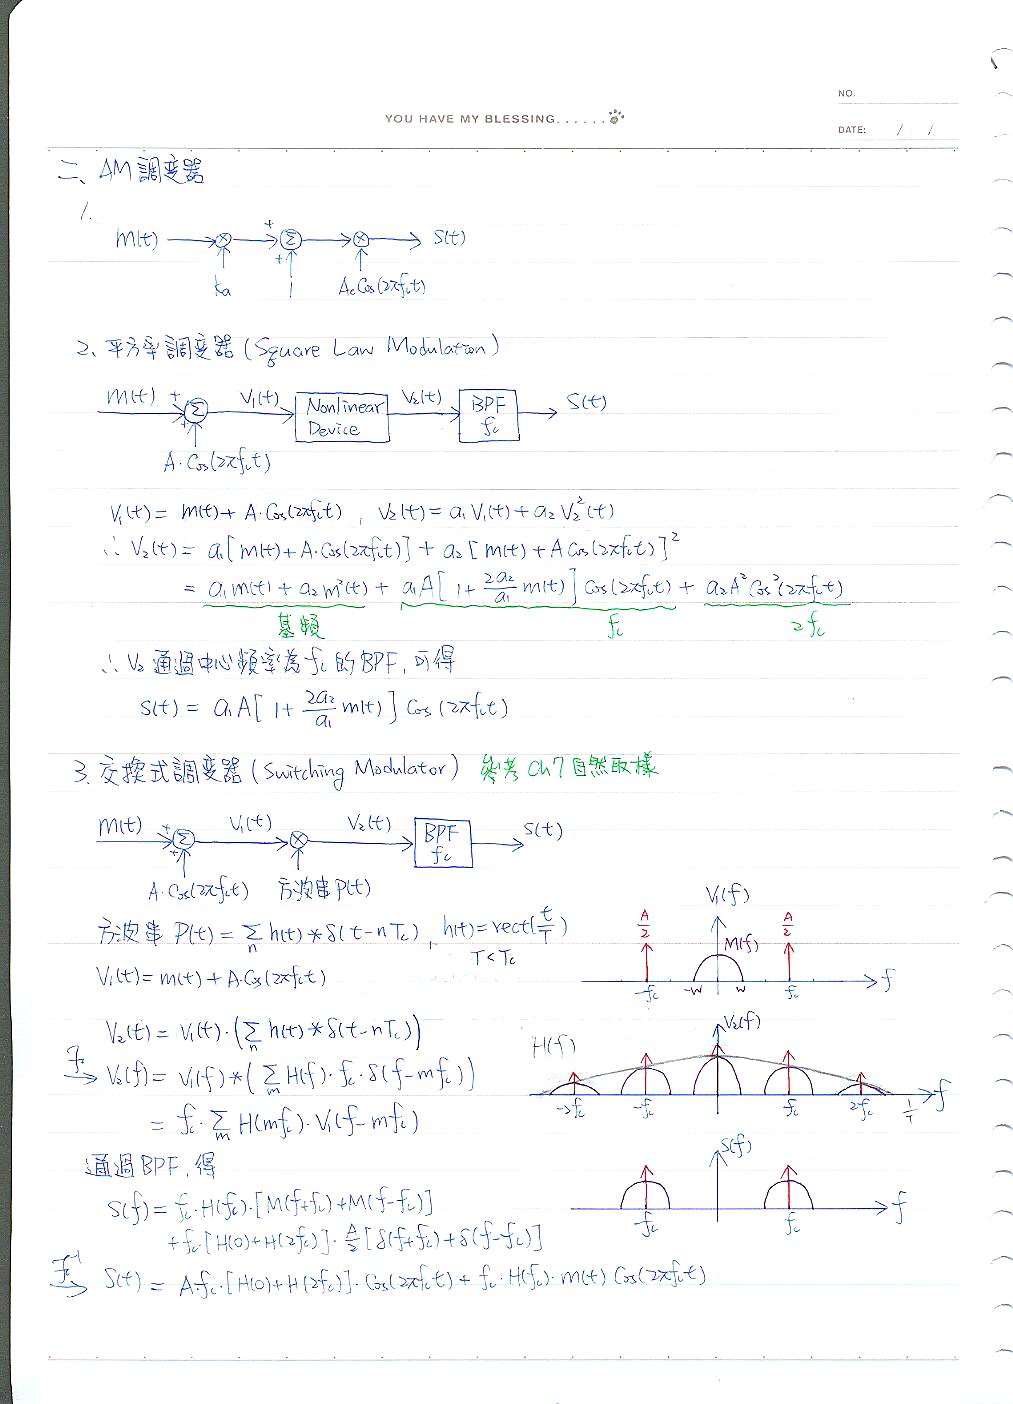 NO.
YOU HAVE MY BLESSING......
DATE: / /
二、AM調變器
1.
m(t) × + Σ × S(t)
+
ka 1 Ac Cos(2πfct)
2、平方率調變器(Square Law Modulation)
m(t) + Σ V1(t) Nonlinear Device V2(t) BPF fc S(t)
+
A·Cos(2πfct)
V1(t) = m(t) + A·Cos(2πfct) , V2(t) = a1V1(t) + a2V2²(t)
∴ V2(t) = a1[m(t)+A·Cos(2πfct)] + a2[m(t)+A Cos(2πfct)]²
= a1m(t) + a2m²(t) + a1A[1+ 2a2/a1 m(t)] Cos(2πfct) + a2A²Cos²(2πfct)
基頻 fc 2fc
∴ V2 通過中心頻率為fc的BPF,可得
S(t) = a1A[1+ 2a2/a1 m(t)] Cos(2πfct)
3.交換式調變器(Switching Modulator) 參考Ch7自然取樣
m(t) + Σ V1(t) × V2(t) BPF fc S(t)
+
A·Cos(2πfct) 方波串P(t)
方波串 P(t) = Σn h(t)*δ(t-nTc) , h(t) = rect(t/T)
T<Tc
V1(t) = m(t) + A·Cos(2πfct)
V1(f)
A/2 M(f) A/2
-fc -W W fc f
V2(t) = V1(t)·(Σn h(t)*δ(t-nTc))
V2(f)
H(f)
-2fc -fc fc 2fc 1/T f
F→ V2(f) = V1(f)*(Σm H(f)·fc·δ(f-mfc))
= fc·Σm H(mfc)·V1(f-mfc)
通過BPF,得
S(f)
-fc fc f
S(f) = fc·H(fc)·[M(f+fc)+M(f-fc)]
+fc·[H(0)+H(2fc)]·A/2[δ(f+fc)+δ(f-fc)]
F⁻¹→ S(t) = A·fc·[H(0)+H(2fc)]·Cos(2πfct) + fc·H(fc)·m(t) Cos(2πfct)